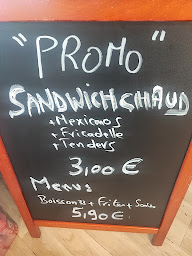 "PROMO"
SANDWICH CHAUD
+ Mexicanos
+ Fricadelle
+ Tenders
3,00 €
Menus
Boissons + Frites + Sauce
5,90 €